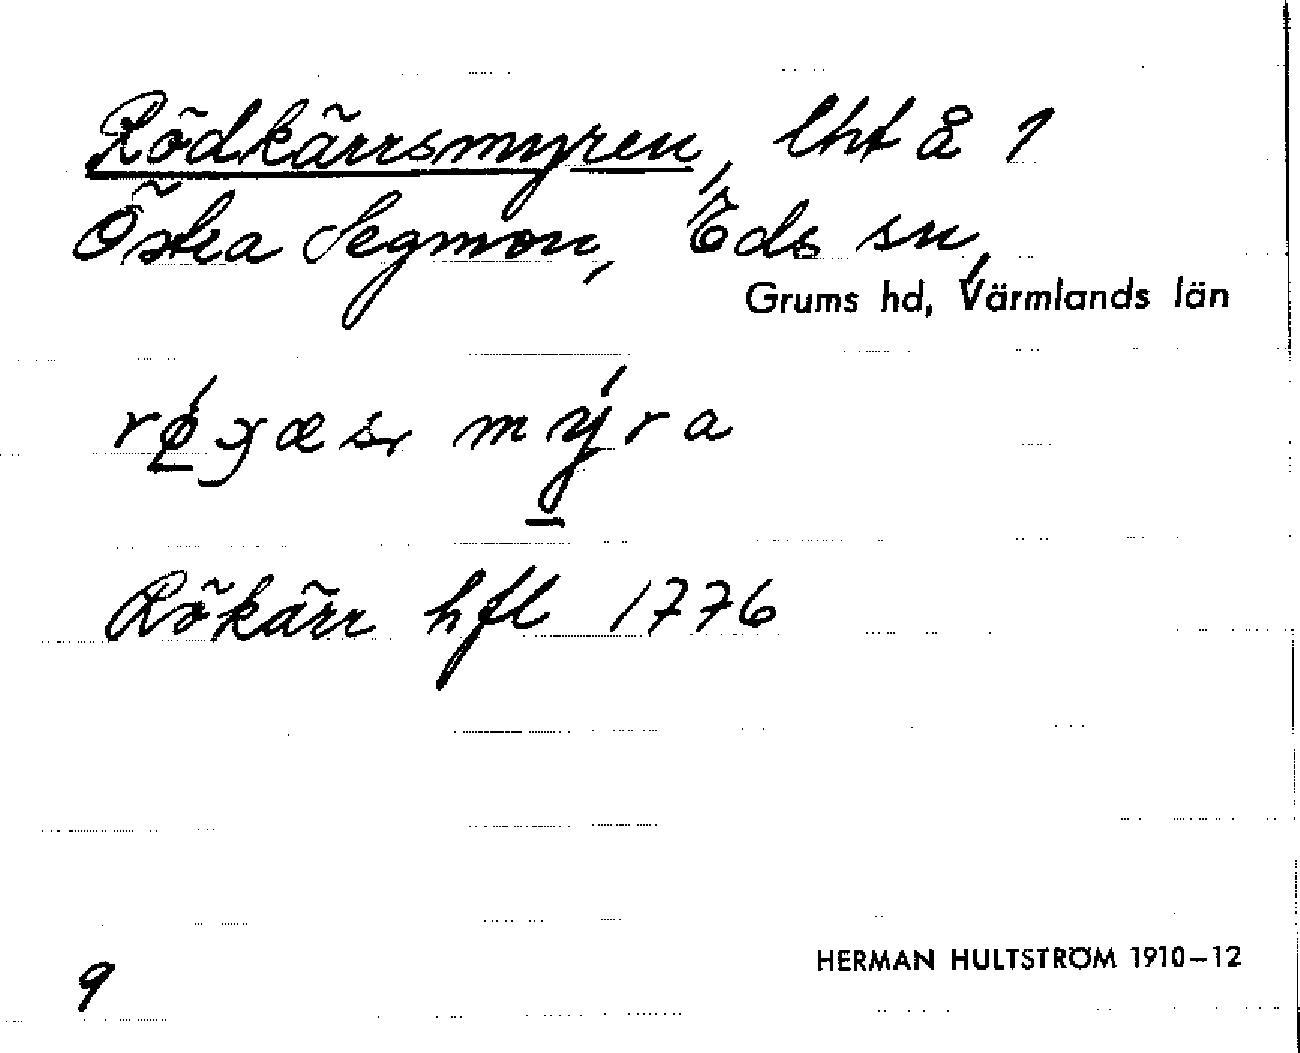 Rödkärrsmyren, lht å 1
Östra Segmon, Eds sn,
Grums hd, Värmlands län
mýra
Rökärr hfl 1776
9
HERMAN HULTSTRÖM 1910–12